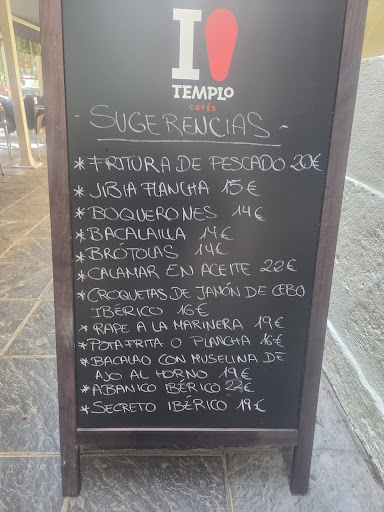 I
TEMPLO
CAFÉS
- SUGERENCIAS -
* FRITURA DE PESCADO 20€
* JIBIA PLANCHA 15€
* BOQUERONES 14€
* BACALAILLA 14€
* BRÓTOLAS 14€
* CALAMAR EN ACEITE 22€
* CROQUETAS DE JAMÓN DE CEBO
IBÉRICO 16€
* RAPE A LA MARINERA 19€
* POTA FRITA O PLANCHA 16€
* BACALAO CON MUSELINA DE
AJO AL HORNO 19€
* ABANICO IBÉRICO 22€
* SECRETO IBÉRICO 19€